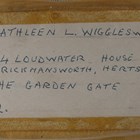 ATHLEEN L. WIGGLESW
4 LOUDWATER HOUSE
RICKMANSWORTH, HERTS
HE GARDEN GATE
2.